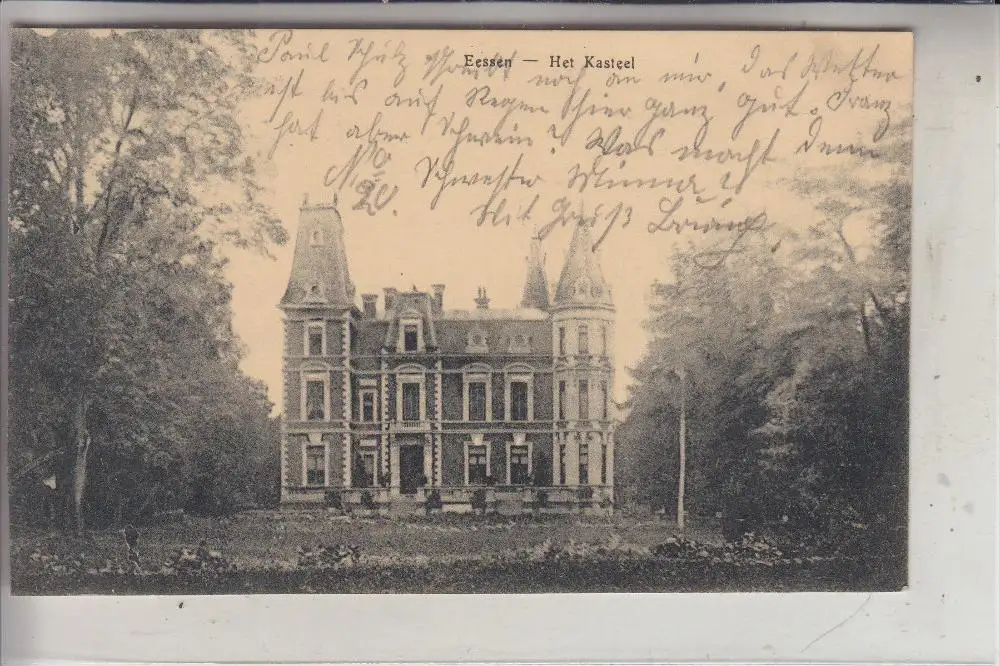 Eessen — Het Kasteel
Paul schreibt noch an mir, das Wetter
ist bis auf Regen hier ganz gut. Franz
hat aber Schwein? Was macht denn
No
20. Schwester Minna?
Mit Gruß